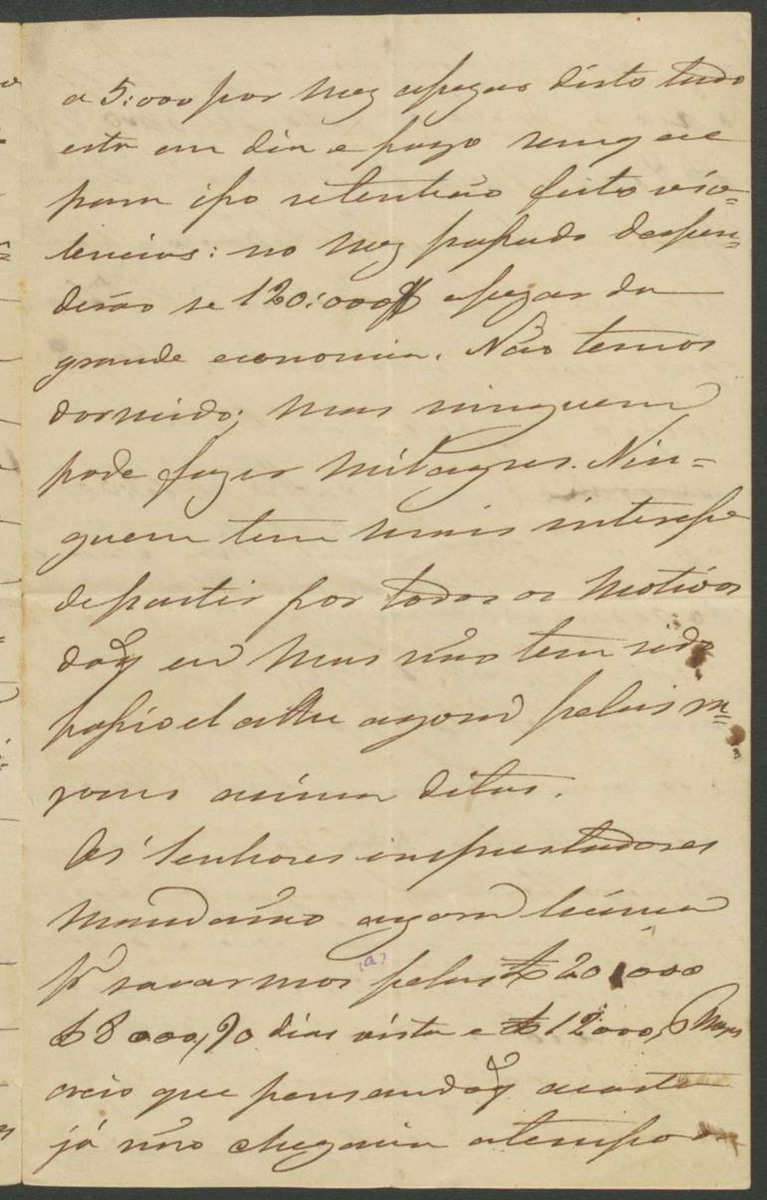 a 5:000 por mez apezar disto tudo
esta em dia e pago sem que
para isso se tenhão feito vio=
lencias: no mez passado despen=
derão se 120:000$ apezar da
grande economia. Não temos
dormido; mas ninguem
pode fazer milagres. Nin=
guem tem mais interesse
de partir por todos os motivos
do q eu mas não tem sido
possivel athe agora pelas ra=
zoens acima ditas.
Os Senhores emprestadores
mandarão agora licença
pª sacarmos (a) pelas £ 20,000
£ 8000, 90 dias vista e £ 12000, 6 Mezes
creio que pensando q acaso
já não chegaria a tempo